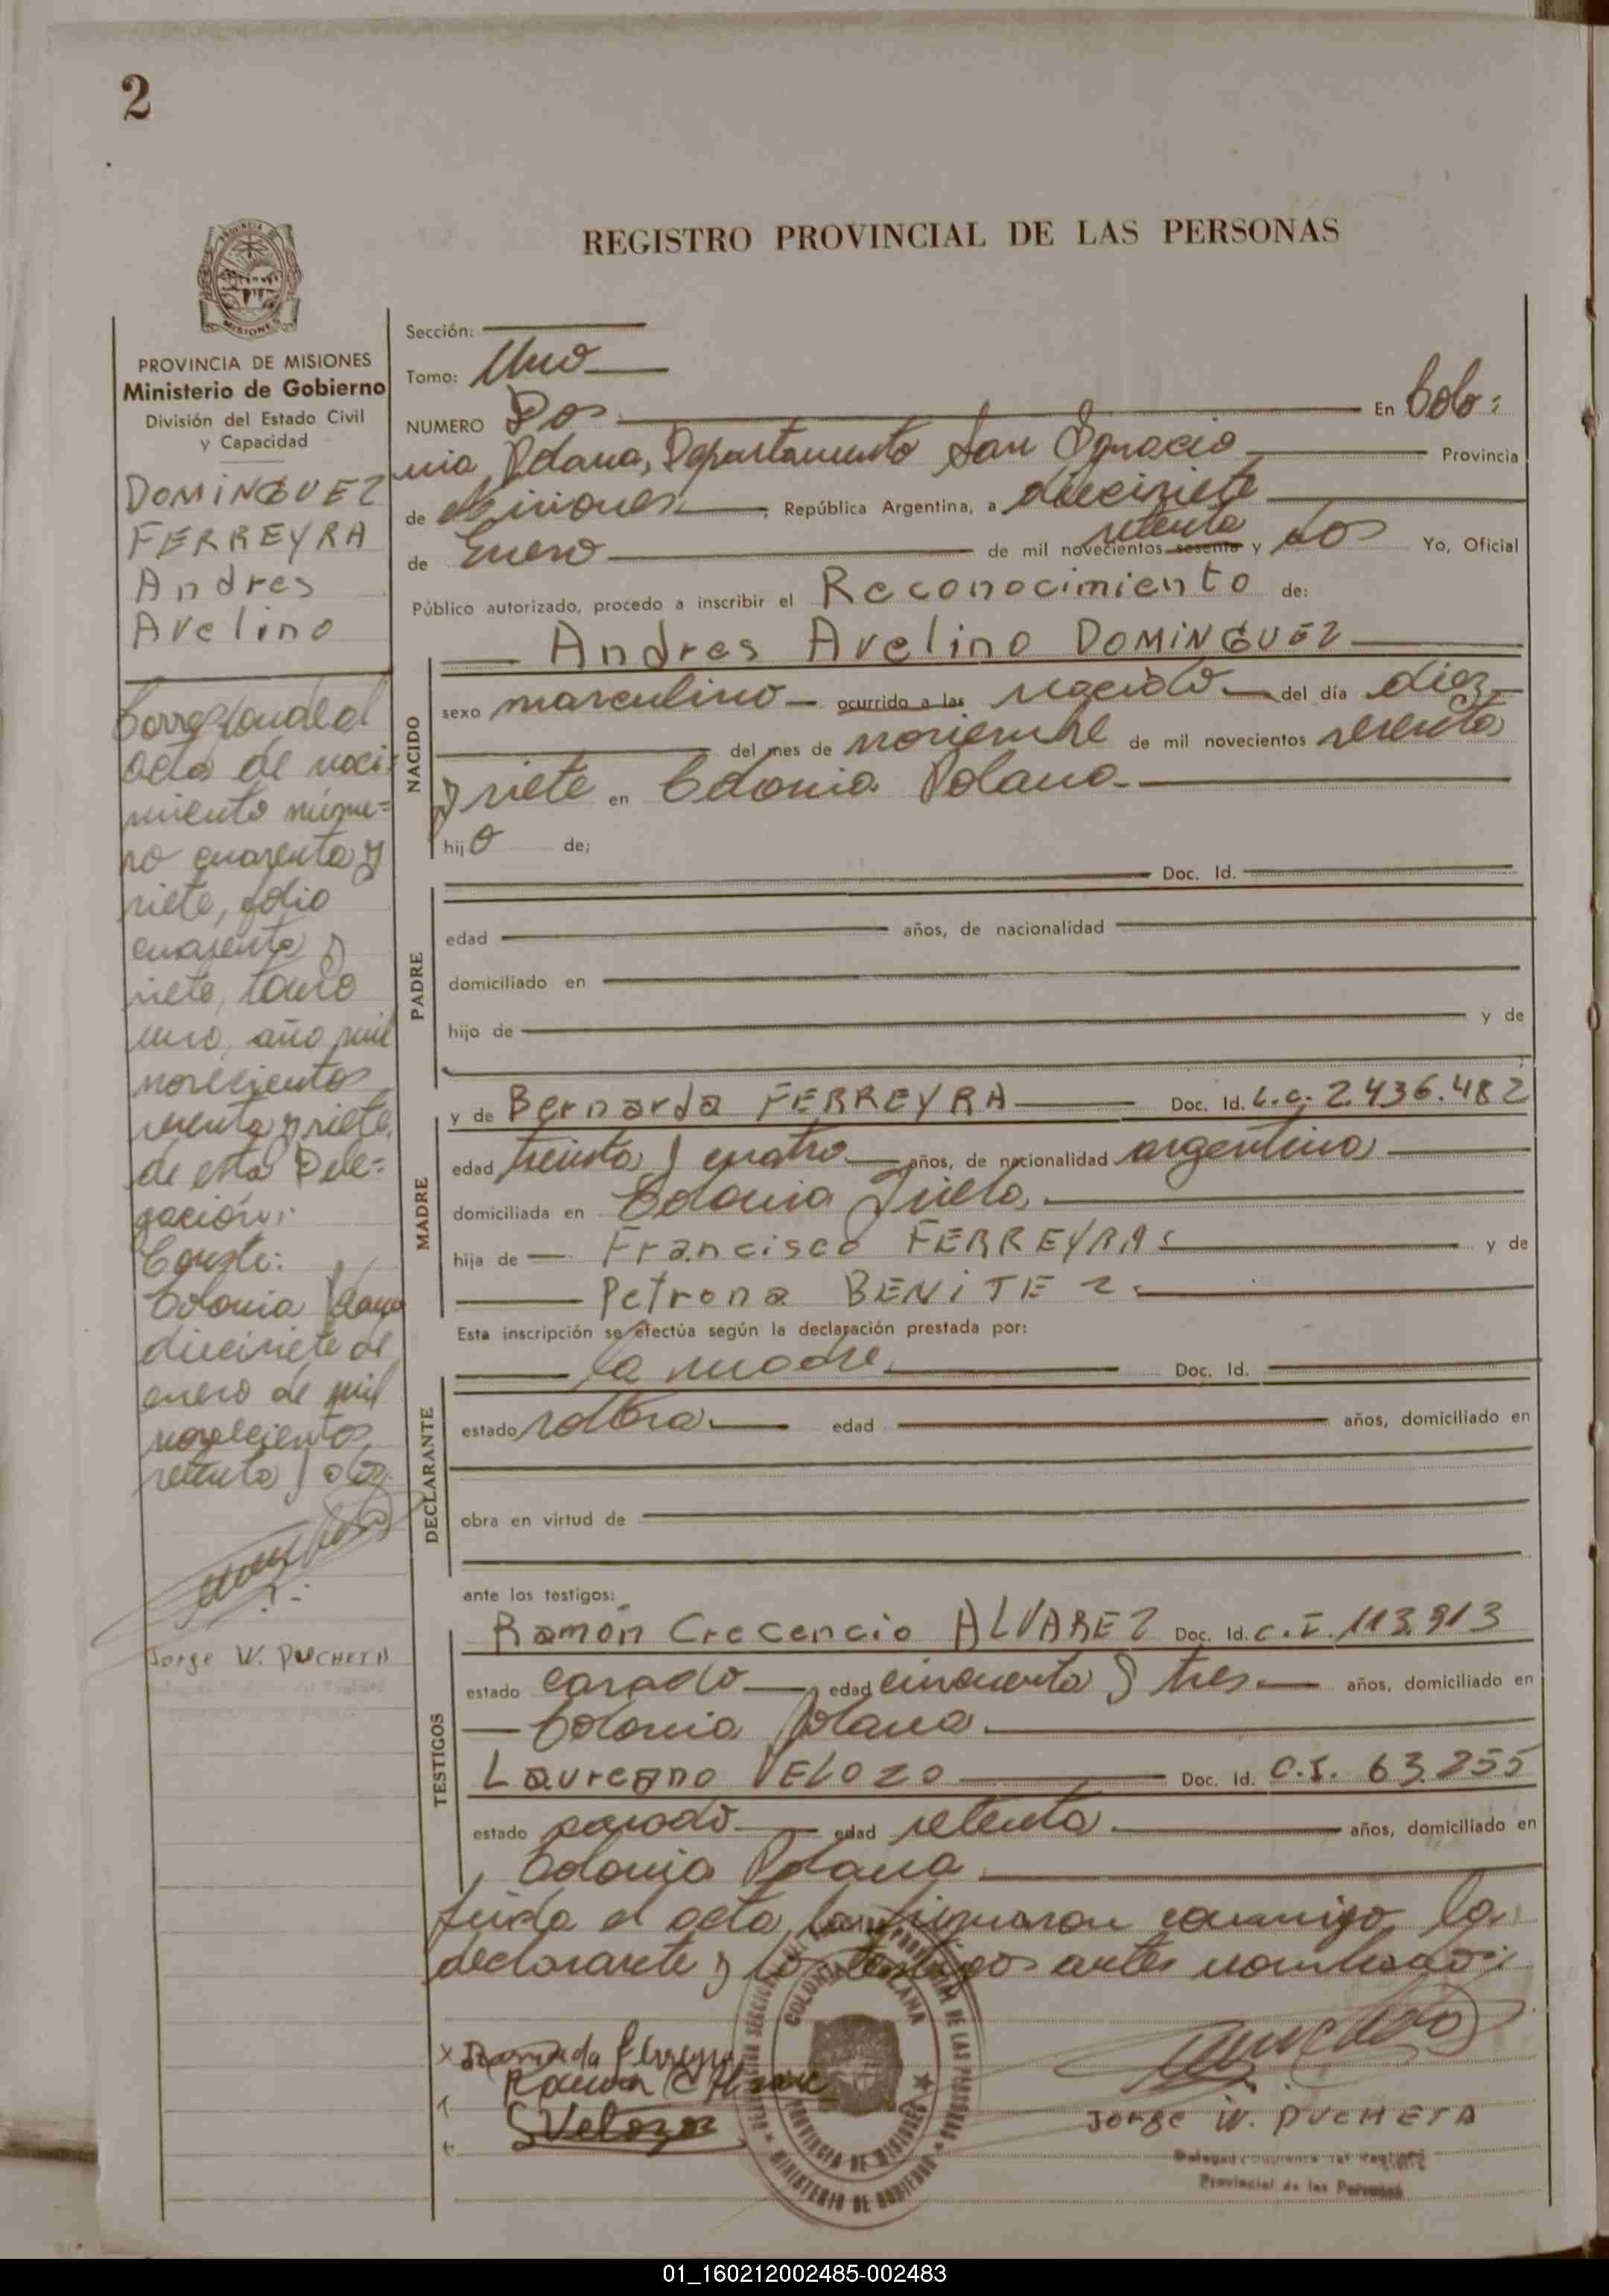 2
REGISTRO PROVINCIAL DE LAS PERSONAS
PROVINCIA DE MISIONES
Ministerio de Gobierno
División del Estado Civil
y Capacidad
DOMINGUEZ
FERREYRA
Andres
Avelino
Corresponde al
acta de naci-
miento núme=
ro cuarenta y
siete, folio
cuarenta y
siete, tomo
uno, año mil
novecientos
sesenta y siete,
de esta Dele=
gación.
Conste:
Colonia Polana
diecisiete de
enero de mil
novecientos
setenta y dos.
Jorge W. PUCHETA
Sección:
Tomo: Uno
NUMERO Dos En Colo=
nia Polana, Departamento San Ignacio Provincia
de Misiones, República Argentina, a diecisiete
setenta
de Enero de mil novecientos sesenta y dos Yo, Oficial
Público autorizado, procedo a inscribir el Reconocimiento de:
Andres Avelino DOMINGUEZ
NACIDO
sexo masculino ocurrido a las nacido del día diez
del mes de noviembre de mil novecientos sesenta
y siete en Colonia Polana
hijo de;
Doc. Id.
PADRE
edad años, de nacionalidad
domiciliado en
hijo de y de
y de Bernarda FERREYRA Doc. Id. L.C. 2.436.482
MADRE
edad treinta y cuatro años, de nacionalidad argentina
domiciliada en Colonia
hija de Francisco FERREYRA y de
Petrona BENITEZ
Esta inscripción se efectúa según la declaración prestada por:
la madre Doc. Id.
DECLARANTE
estado soltera edad años, domiciliado en
obra en virtud de
ante los testigos:
Ramón Crecencio ALVAREZ Doc. Id. C.I. 113.913
TESTIGOS
estado casado edad cincuenta y tres años, domiciliado en
Colonia Polana
Laureano VELOZO Doc. Id. C.I. 63.255
estado casado edad setenta años, domiciliado en
Colonia Polana
Leída el acta, la firmaron conmigo, la
declarante y los testigos antes nombrados:
Bernarda Ferreyra
Ramon C Alvarez
Velozo
COLONIA POLANA
PROVINCIA DE MISIONES
MINISTERIO DE GOBIERNO
Jorge W. PUCHETA
Provincial de las Personas
01_160212002485-002483